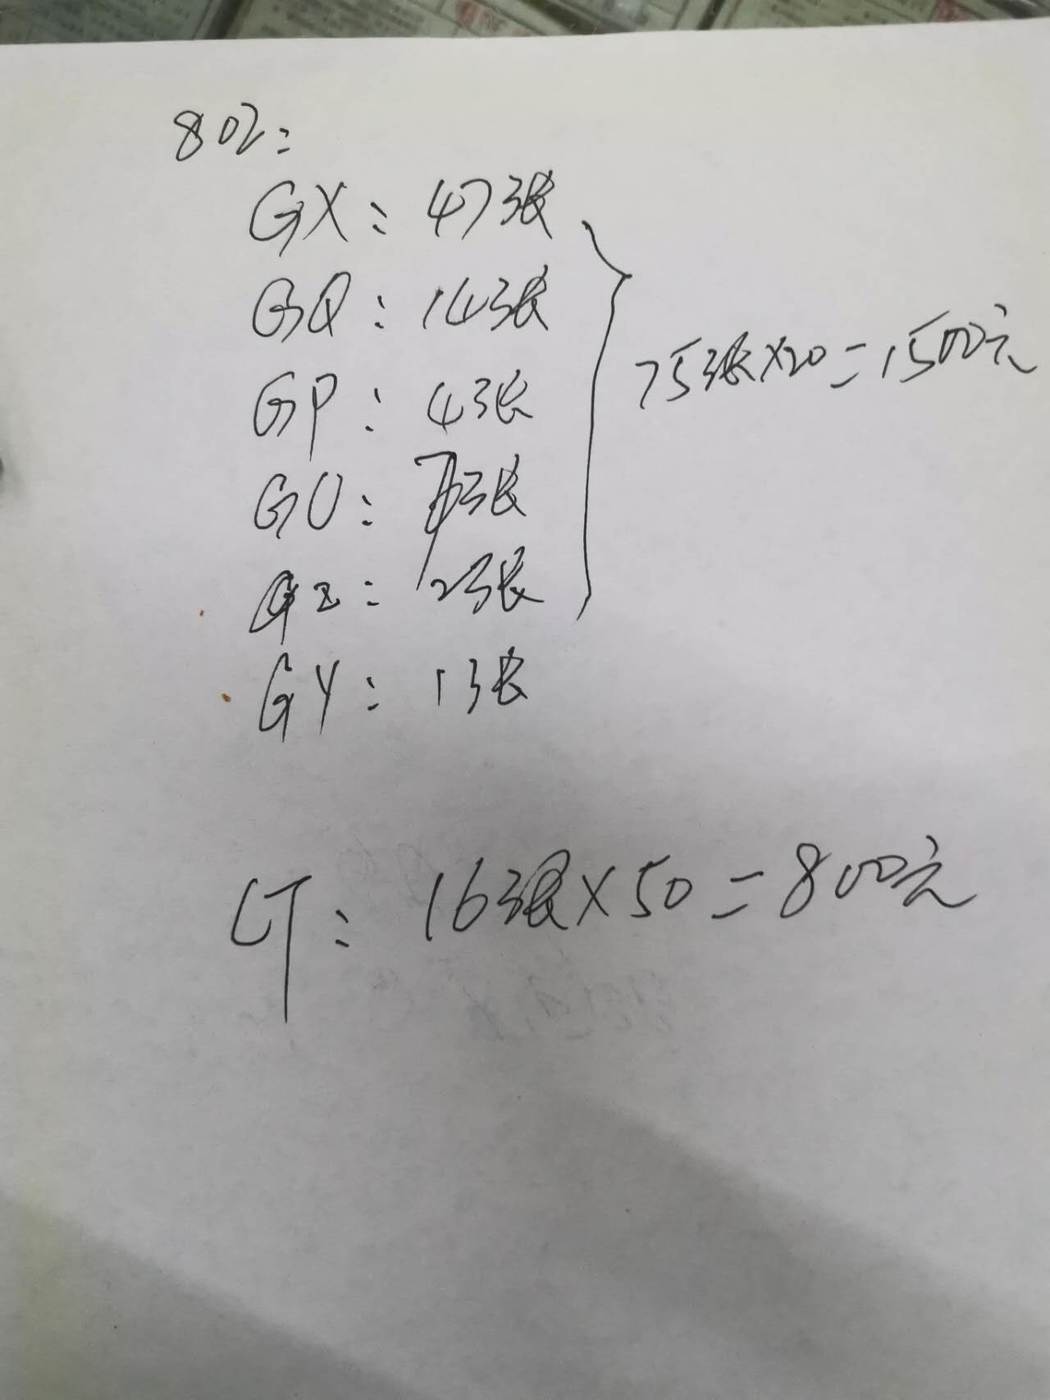 802:
GX: 47张
GQ: 14张
GP: 4张
75张×20=1500元
GU: 7张
GZ: 2张
GY: 1张
CT: 16张×50=800元